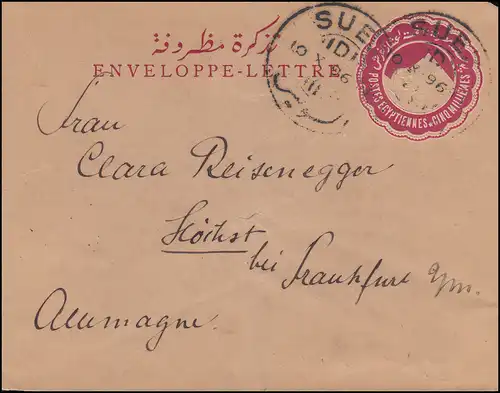 تذكرة مظروفة
ENVELOPPE-LETTRE
SUE
SUE
96
96
POSTES EGYPTIENNES CINQ MILLIEMES
Frau
Clara Reisenegger
Höchst
bei Frankfurt a/m.
Allemagne.